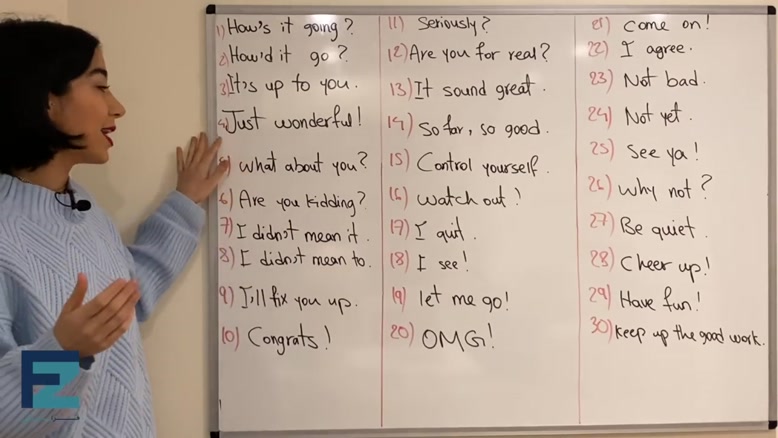 1) How's it going?
2) How'd it go?
3) It's up to you.
4) Just wonderful!
5) what about you?
6) Are you kidding?
7) I didn't mean it.
8) I didn't mean to.
9) I'll fix you up.
10) Congrats!
11) Seriously?
12) Are you for real?
13) It sound great.
14) So far, so good.
15) Control yourself.
16) watch out!
17) I quit.
18) I see!
19) let me go!
20) OMG!
21) come on!
22) I agree.
23) Not bad.
24) Not yet.
25) See ya!
26) why not?
27) Be quiet.
28) Cheer up!
29) Have fun!
30) keep up the good work.
EZ